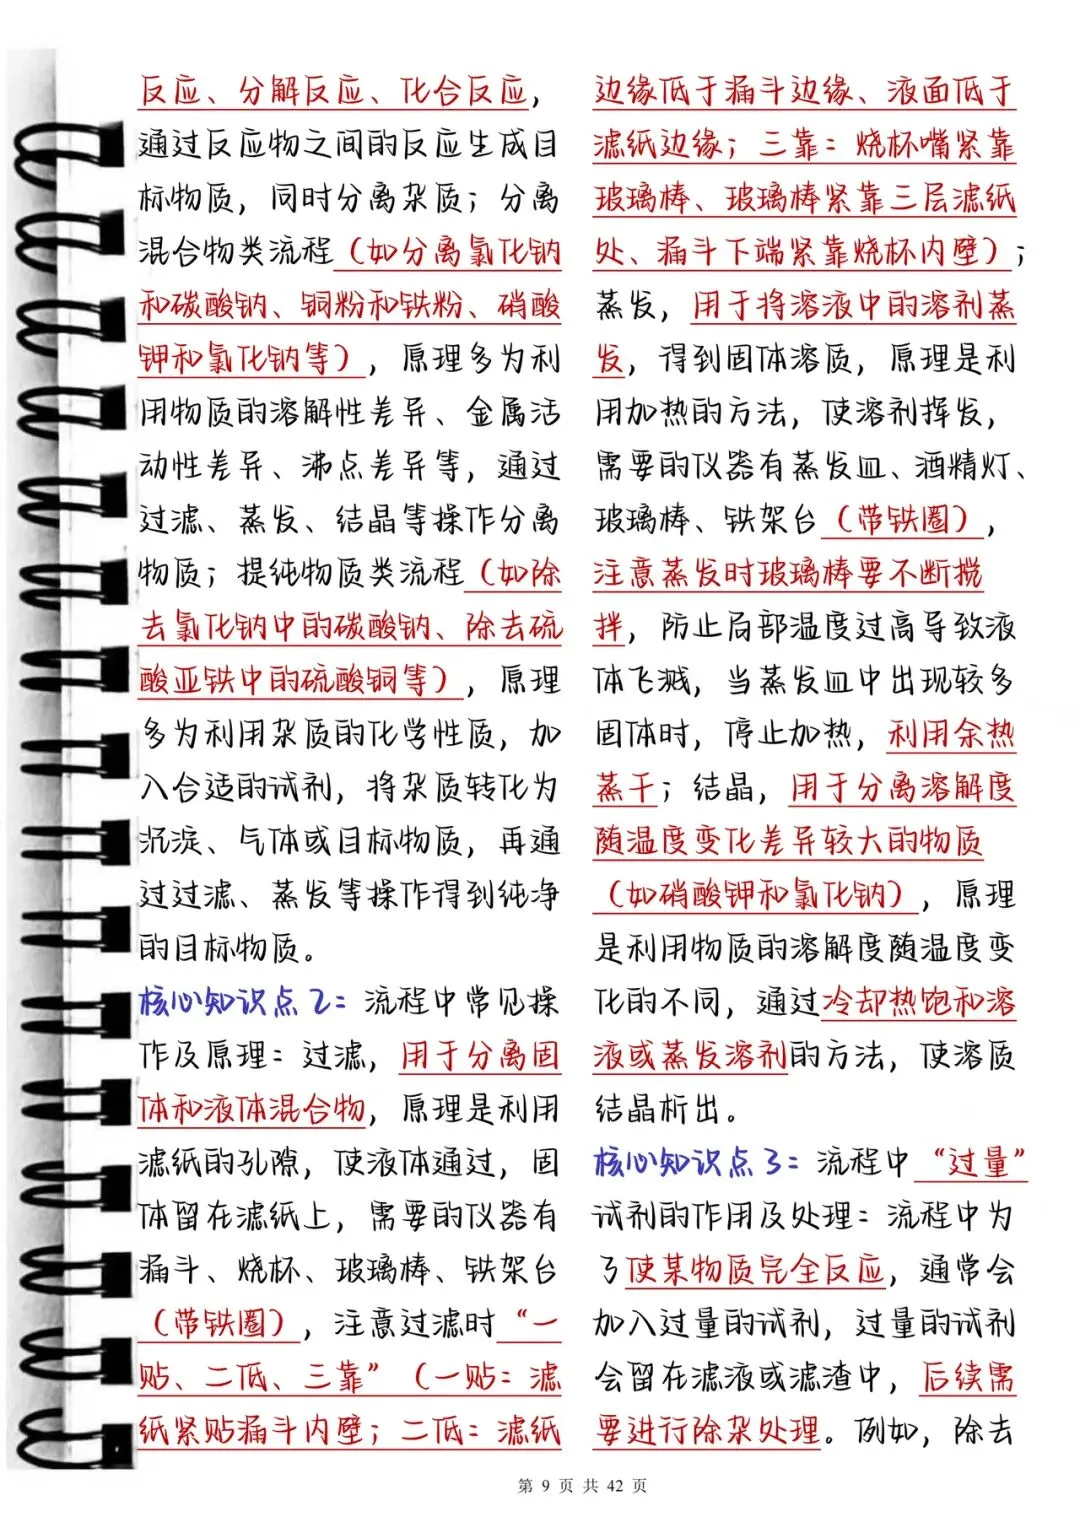 反应、分解反应、化合反应，
通过反应物之间的反应生成目
标物质，同时分离杂质；分离
混合物类流程（如分离氯化钠
和碳酸钠、铜粉和铁粉、硝酸
钾和氯化钠等），原理多为利
用物质的溶解性差异、金属活
动性差异、沸点差异等，通过
过滤、蒸发、结晶等操作分离
物质；提纯物质类流程（如除
去氯化钠中的碳酸钠、除去硫
酸亚铁中的硫酸铜等），原理
多为利用杂质的化学性质，加
入合适的试剂，将杂质转化为
沉淀、气体或目标物质，再通
过过滤、蒸发等操作得到纯净
的目标物质。
核心知识点2：流程中常见操
作及原理：过滤，用于分离固
体和液体混合物，原理是利用
滤纸的孔隙，使液体通过，固
体留在滤纸上，需要的仪器有
漏斗、烧杯、玻璃棒、铁架台
（带铁圈），注意过滤时“一
贴、二低、三靠”（一贴：滤
纸紧贴漏斗内壁；二低：滤纸
边缘低于漏斗边缘、液面低于
滤纸边缘；三靠：烧杯嘴紧靠
玻璃棒、玻璃棒紧靠三层滤纸
处、漏斗下端紧靠烧杯内壁）；
蒸发，用于将溶液中的溶剂蒸
发，得到固体溶质，原理是利
用加热的方法，使溶剂挥发，
需要的仪器有蒸发皿、酒精灯、
玻璃棒、铁架台（带铁圈），
注意蒸发时玻璃棒要不断搅
拌，防止局部温度过高导致液
体飞溅，当蒸发皿中出现较多
固体时，停止加热，利用余热
蒸干；结晶，用于分离溶解度
随温度变化差异较大的物质
（如硝酸钾和氯化钠），原理
是利用物质的溶解度随温度变
化的不同，通过冷却热饱和溶
液或蒸发溶剂的方法，使溶质
结晶析出。
核心知识点3：流程中“过量”
试剂的作用及处理：流程中为
了使某物质完全反应，通常会
加入过量的试剂，过量的试剂
会留在滤液或滤渣中，后续需
要进行除杂处理。例如，除去
第 9 页 共 42 页